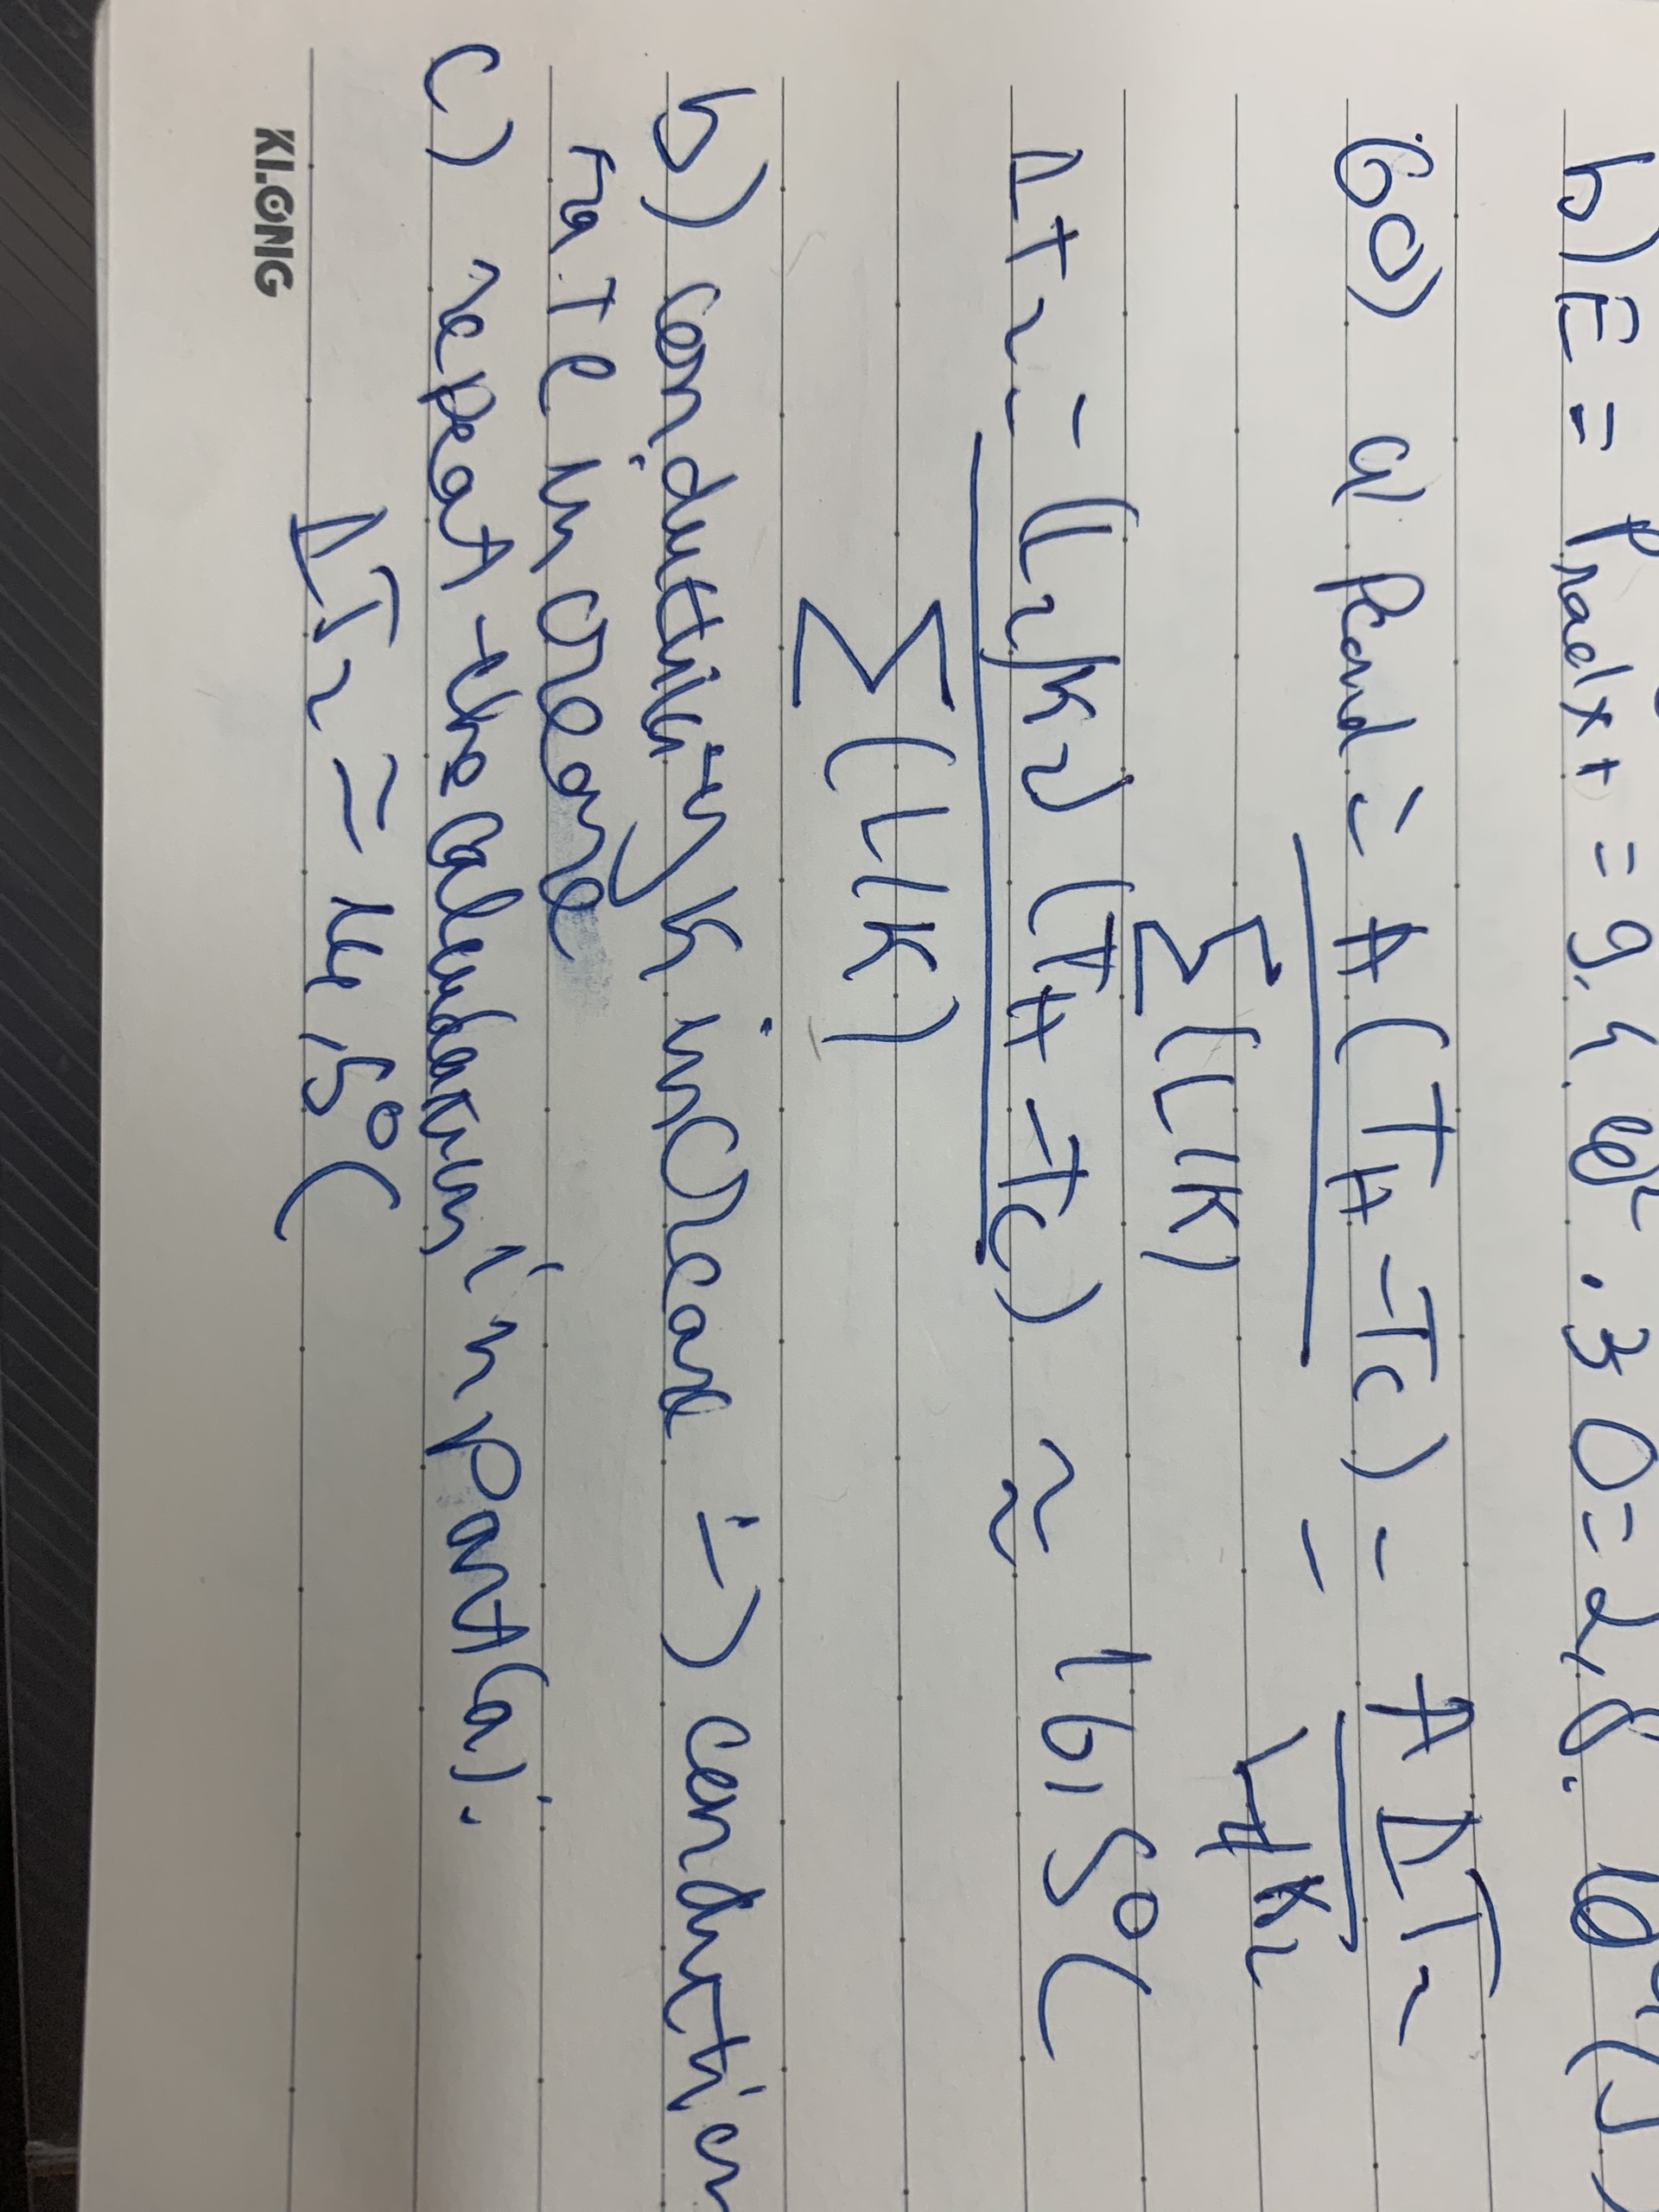 b) E = Prad x t = 9,4. 10² . 30 = 2,8. 10
60) a) Pcond = A (TH - Tc) / Σ(L/K) = A ΔT2 / L2/K2
ΔT2 = (L2/K2) (TH - Tc) / Σ (L/K) ≈ 16,5°C
b) conductivity K increase => conduction
rate increase
c) repeat the calculation in part (a).
ΔT2 = 14,5°C
KLONG